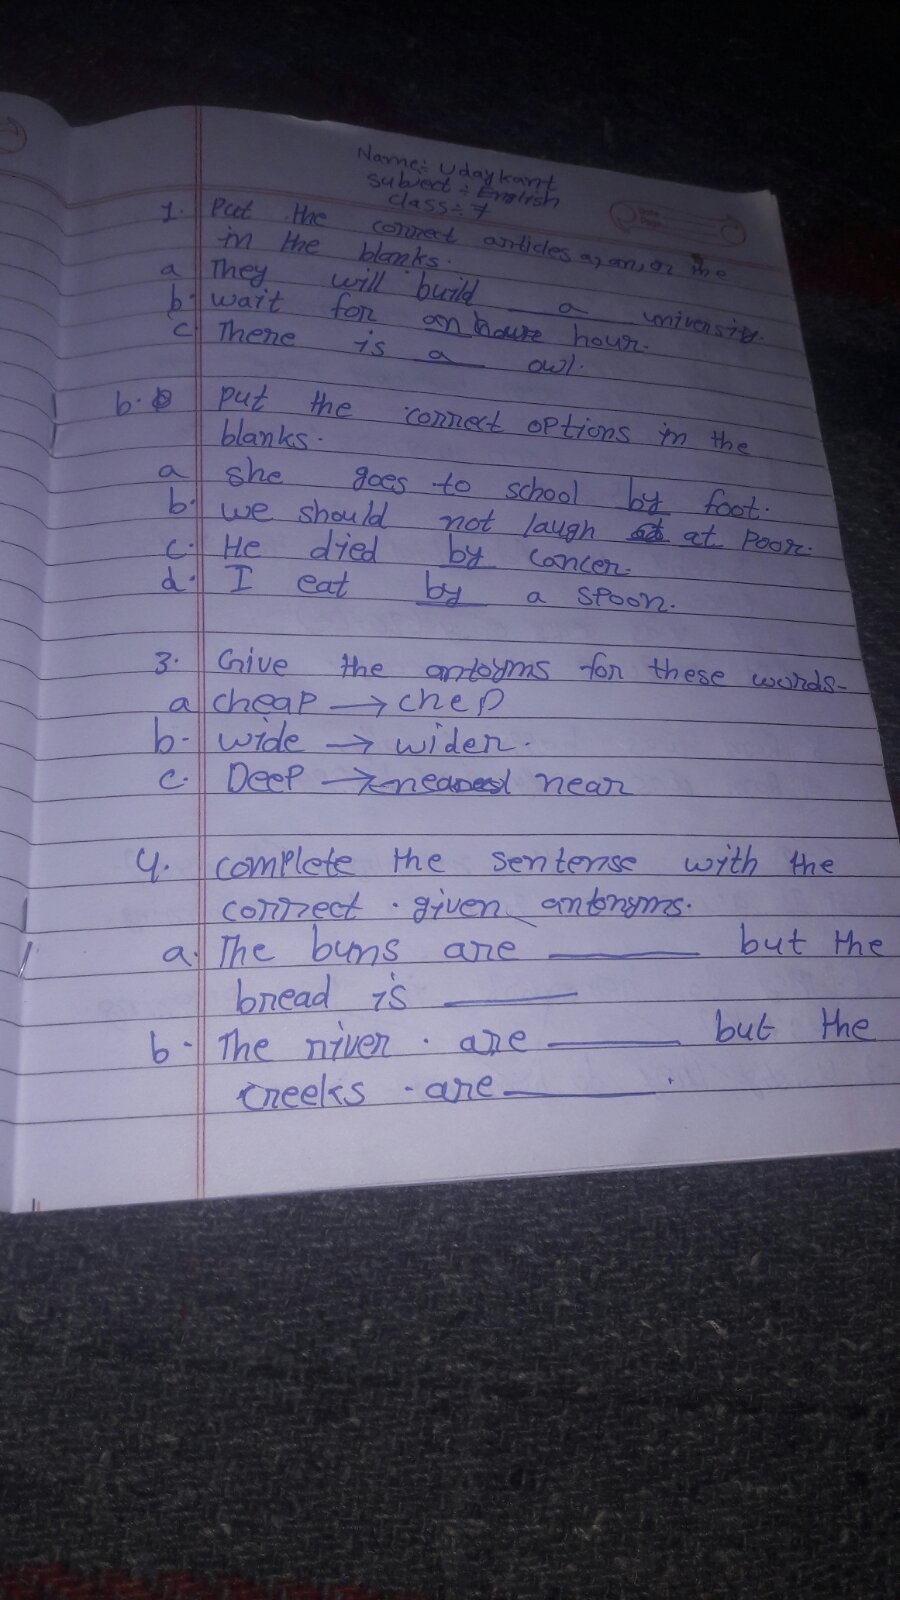 Name:- Uday kant
Subject:- English
class:- 7
1. Put the correct articles a, an, or the
in the blanks.
a They will build a university.
b. wait for an hour.
c. There is a owl.
b. Put the correct options in the
blanks.
a she goes to school by foot.
b. we should not laugh at poor.
c. He died by cancer.
d. I eat by a spoon.
3. Give the antoyms for these words-
a cheap → chep
b. wide → wider.
c. Deep → near
4. complete the sentense with the
correct . given antonyms.
a. The buns are ______ but the
bread is ______
b. The river . are ______ but the
creeks . are ______.